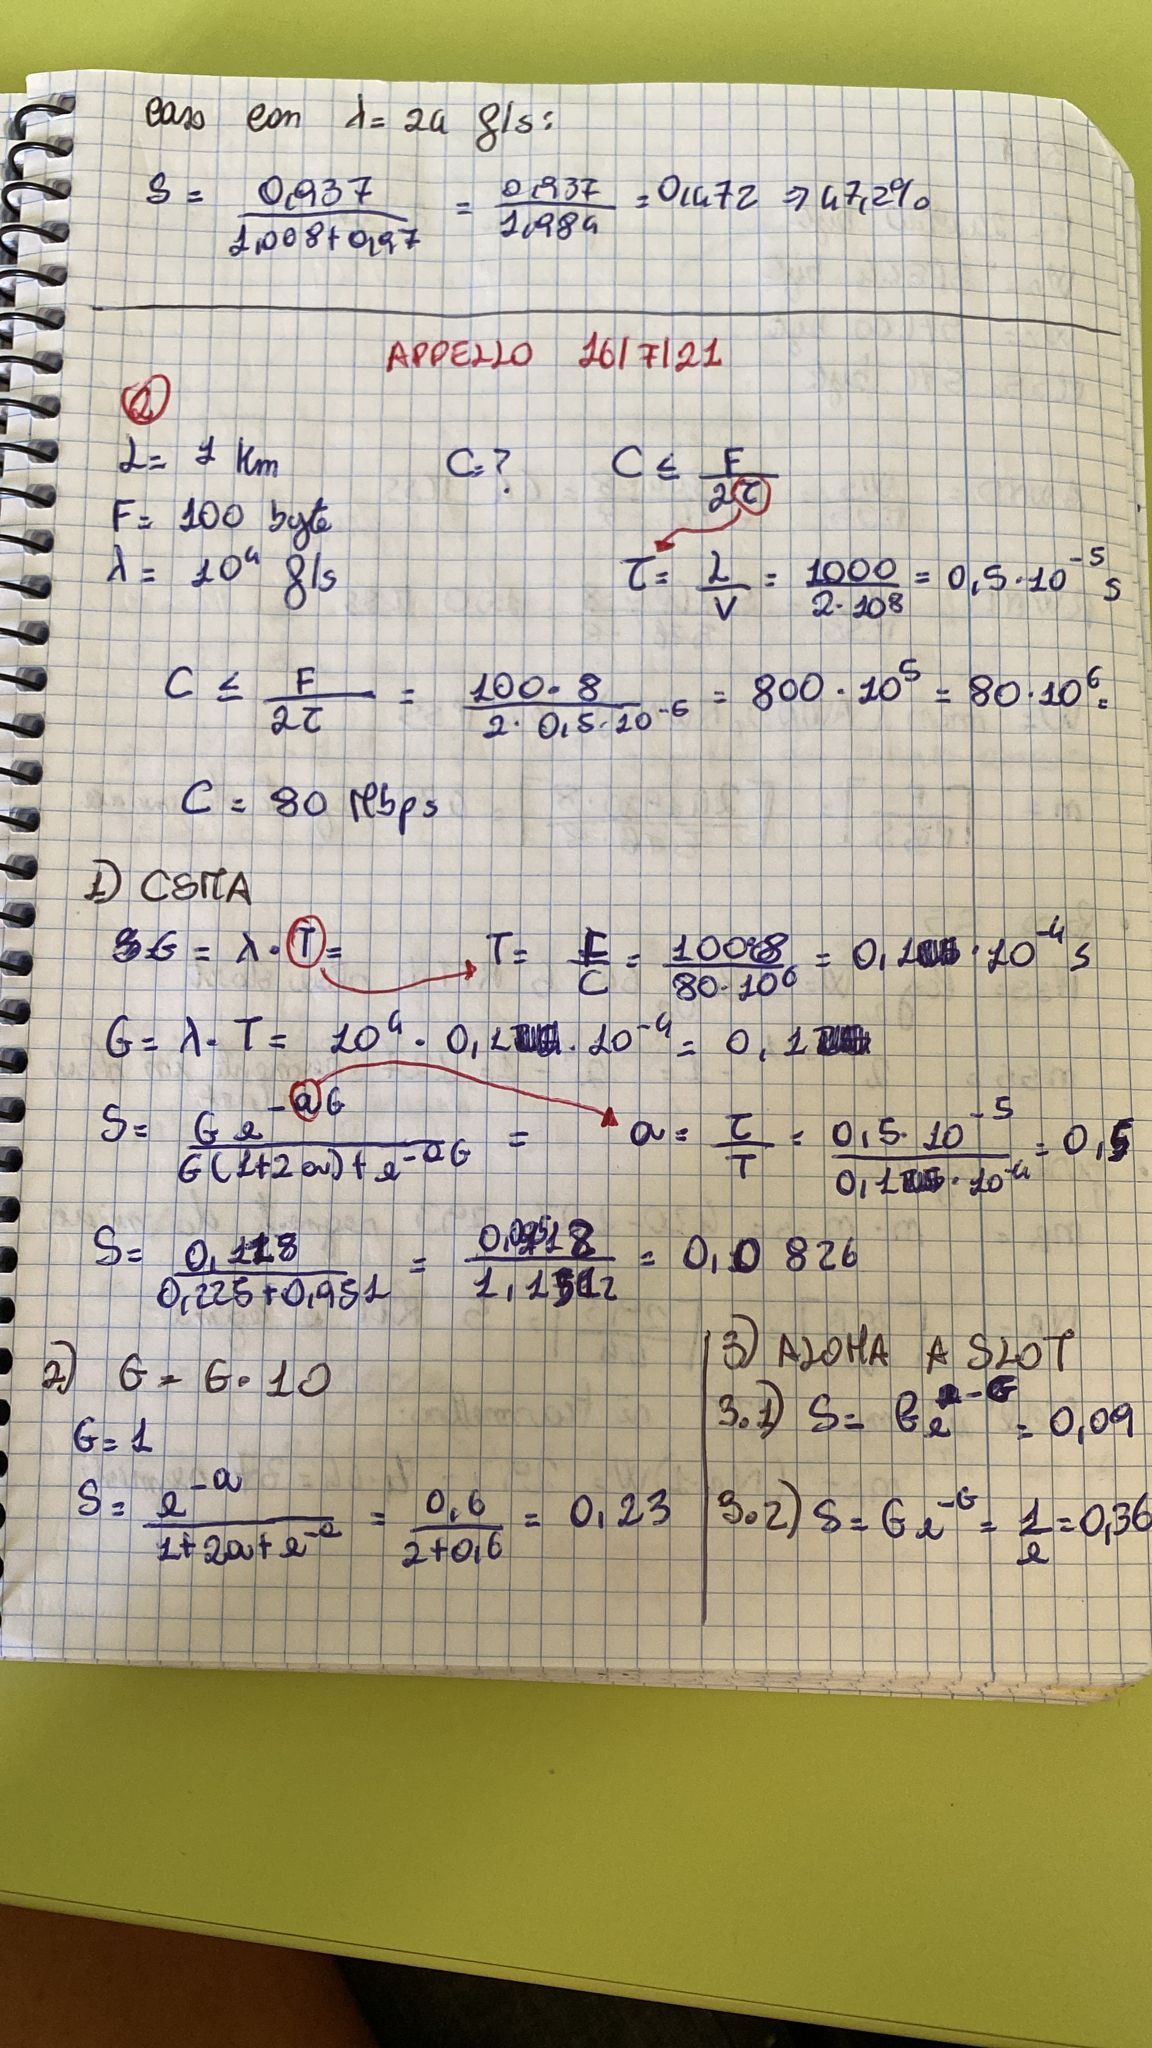 caso con λ = 24 g/s:
S = 0,937 / (1,008+0,97) = 0,937 / 1,984 = 0,472 ⇒ 47,2%
APPELLO 16/7/21
2
L = 1 Km C = ? C ≤ F / 2τ
F = 100 byte
λ = 10⁴ g/s τ = L / V = 1000 / (2·10⁸) = 0,5·10⁻⁵ s
C ≤ F / 2τ = 100·8 / (2·0,5·10⁻⁶) = 800·10⁵ = 80·10⁶ =
C = 80 Mbps
1) CSMA
G = λ·T = T = F / C = 100·8 / (80·10⁶) = 0,1·10⁻⁴ s
G = λ·T = 10⁴·0,1·10⁻⁴ = 0,1
S = G e^(-aG) / (G(1+2a)+e^(-aG)) = a = τ / T = 0,5·10⁻⁵ / (0,1·10⁻⁴) = 0,5
S = 0,118 / (0,225+0,951) = / = 0,0826
2) G = G·10
G = 1
S = e^(-a) / (1+2a+e^(-a)) = 0,6 / (2+0,6) = 0,23
3) ALOHA A SLOT
3.1) S = G e^(-G) = 0,09
3.2) S = G e^(-G) = 1 / e = 0,36